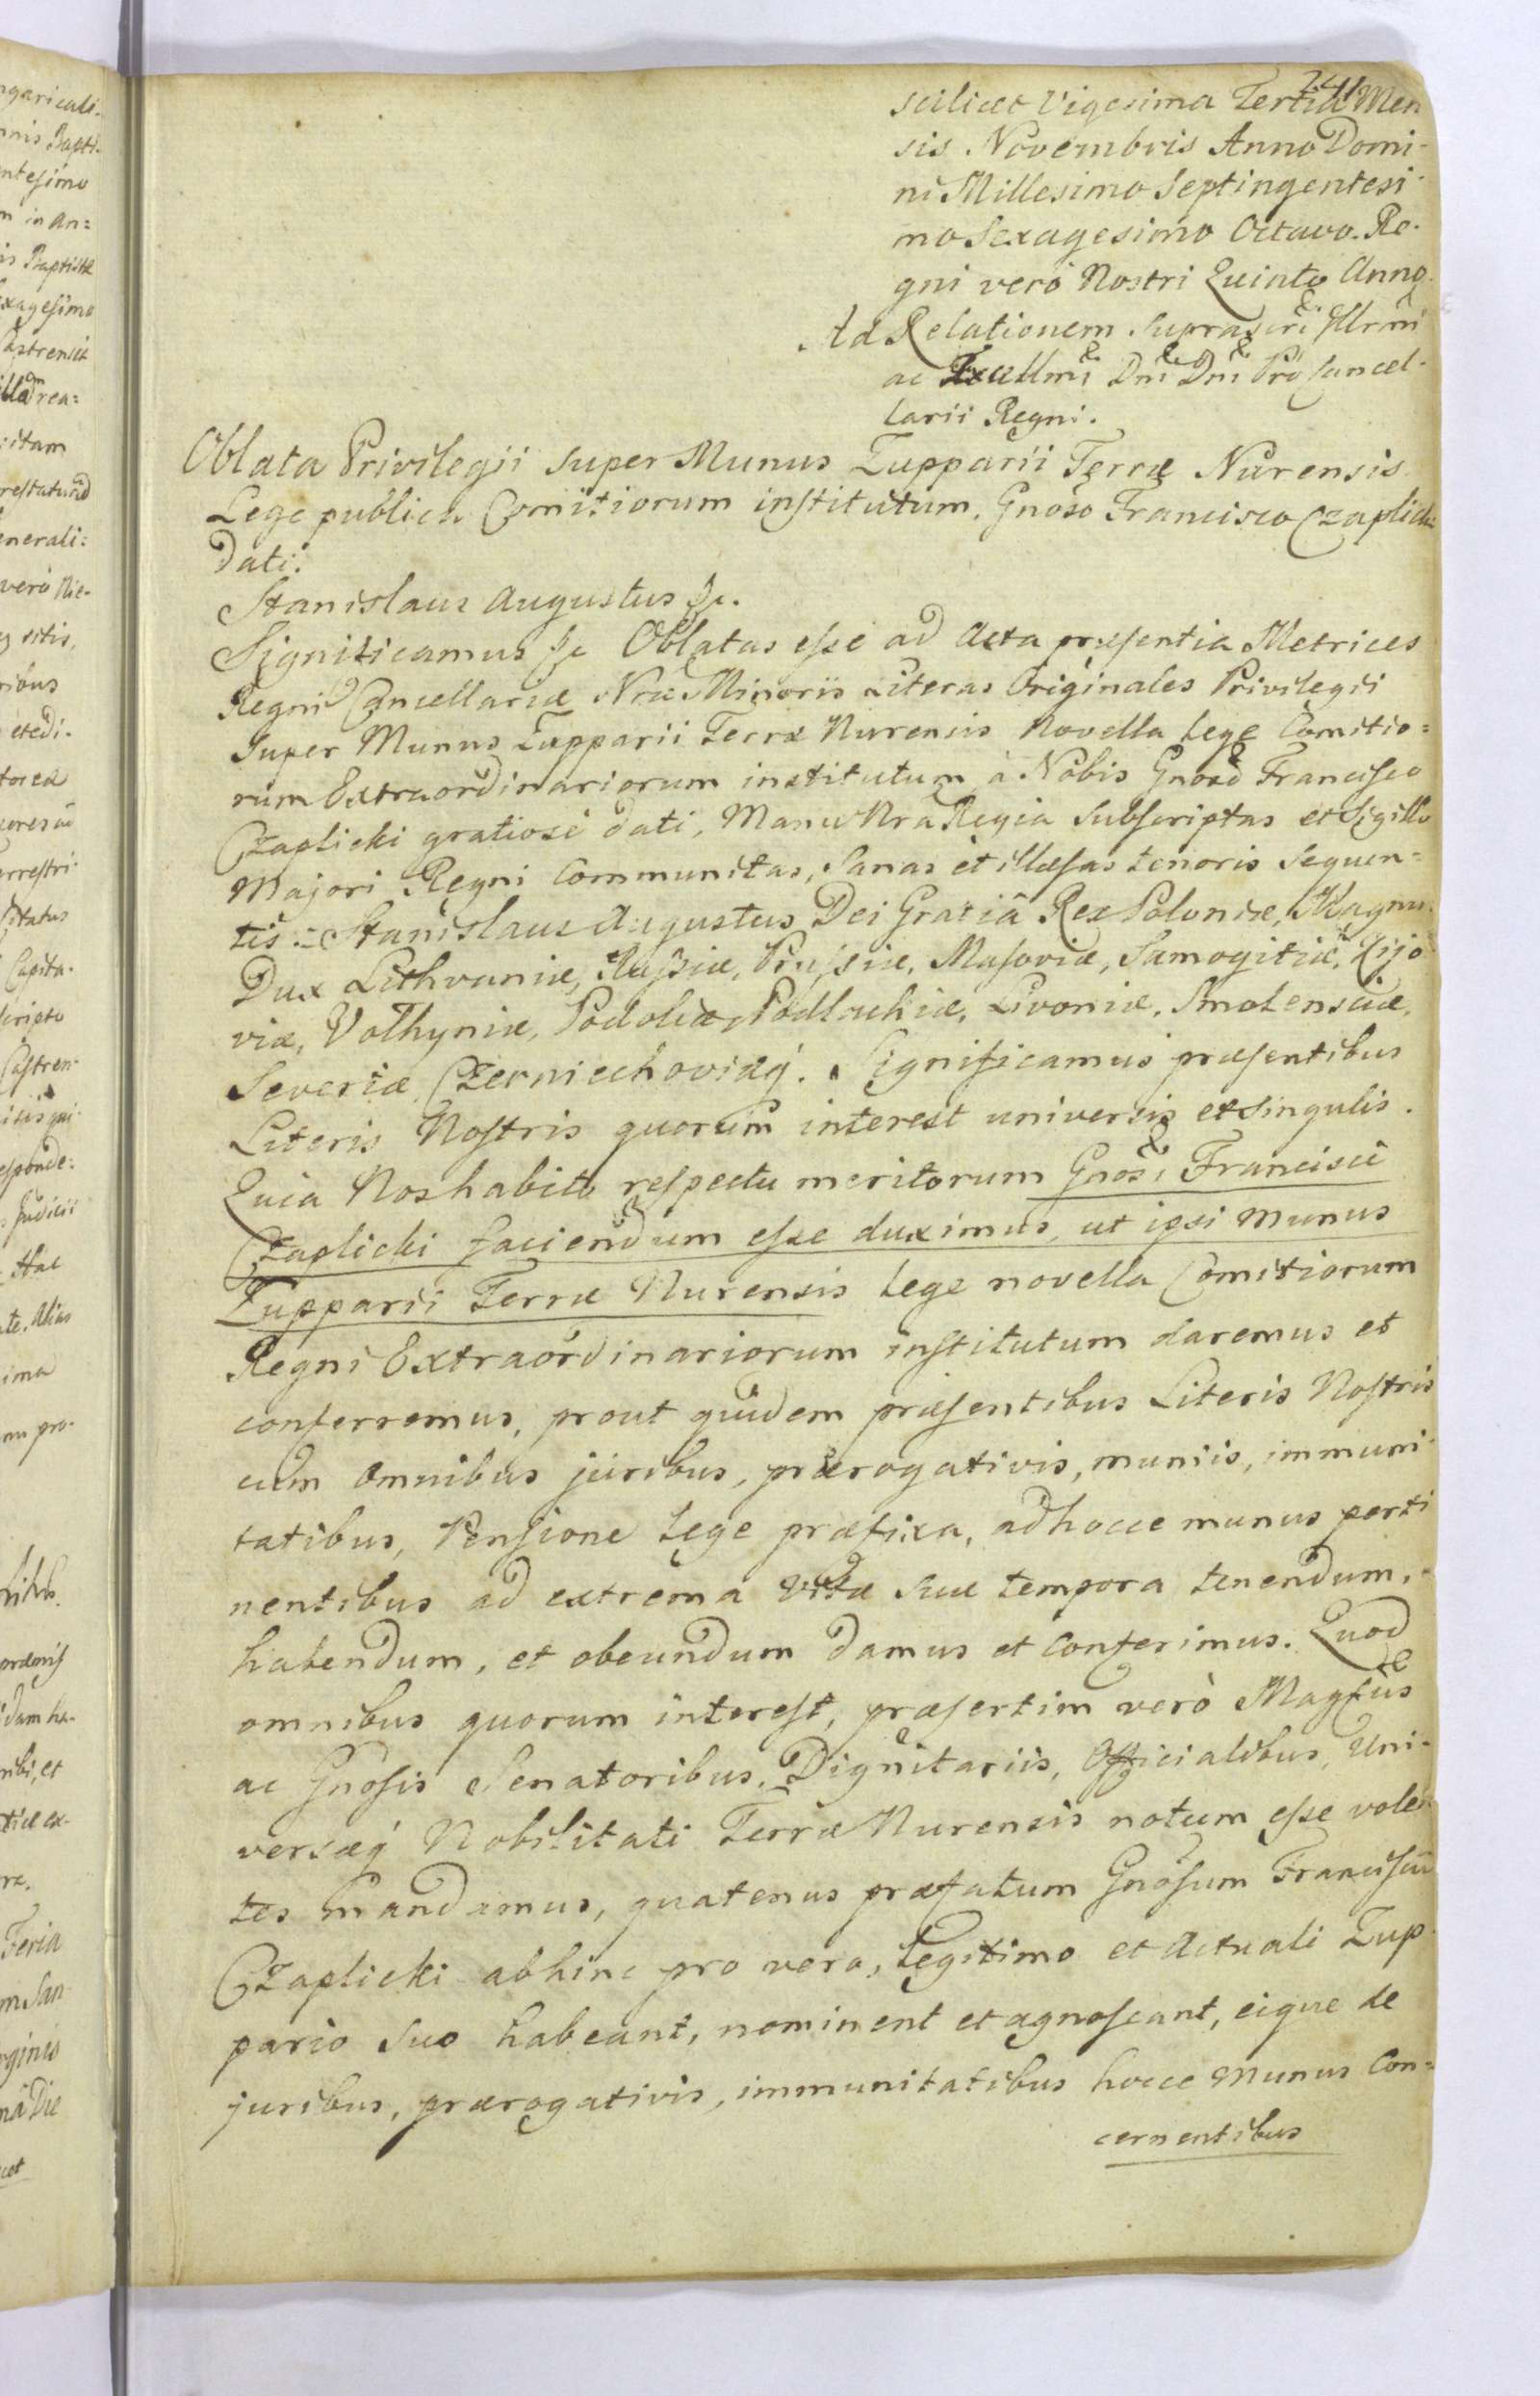 241
scilicet Vigesima Tertia Men
sis Novembris Anno Domi-
ni Millesimo Septingentesi-
mo Sexagesimo Octavo. Re-
gni verò Nostri Quinto Anno.
Ad Relationem suprascri Illrmi
ac Excellmi Dni Dni Pro Cancel-
larii Regni.
Oblata Privilegii super Munus Zupparii Terræ Nurensis
Lege publica Comitiorum institutum. Gnoso Francisco Czaplicki
dati.
Stanislaus Augustus &c.
Significamus &c Oblatas esse ad Acta præsentia Metrices
Regni Cancellariæ Nræ Minoris Literas Originales Privilegii
super Munus Zupparii Terræ Nurensis Novella Lege Comitio=
rum Extraordinariorum institutum à Nobis Gnoso Francisco
Czaplicki gratiosè dati, Manu Nra Regia subscriptas et Sigillo
Majori Regni Communitas, Sanas et illæsas tenoris sequen=
tis := Stanislaus Augustus Dei Gratiâ Rex Poloniæ, Magnus
Dux Lithvaniæ, Russiæ, Prussiæ, Masoviæ, Samogitiæ, Kijo
viæ, Volhyniæ, Podoliæ, Podlachiæ, Livoniæ, Smolensciæ,
Severiæ, Czerniechoviæq. Significamus præsentibus
Literis Nostris quorum interest universis et singulis.
Quia Nos habito respectu meritorum Gnosi Francisci
Czaplicki faciendum esse duximus, ut ipsi munus
Zupparii Terræ Nurensis Lege novella Comitiorum
Regni Extraordinariorum institutum daremus et
conferremus, prout quidem præsentibus Literis Nostris
cum omnibus juribus, prærogativis, muniis, immuni-
tatibus, Pensione Lege præfixa, ad hocce munus perti
nentibus ad extrema vitæ suæ tempora tenendum,
habendum, et obeundum damus et conferimus. Quod
omnibus quorum interest, præsertim verò Magcis
ac Gnosis Senatoribus, Dignitariis, Officialibus, Uni-
versæq Nobilitati Terræ Nurensis notum esse volen
tes mandamus, quatenus præfatum Gnosum Franciscum
Czaplicki abhinc pro vero, Legitimo et Actuali Zup
pario suo habeant, nominent et agnoscant, eique de
juribus, prærogativis, immunitatibus hocce munus con=
cernentibus